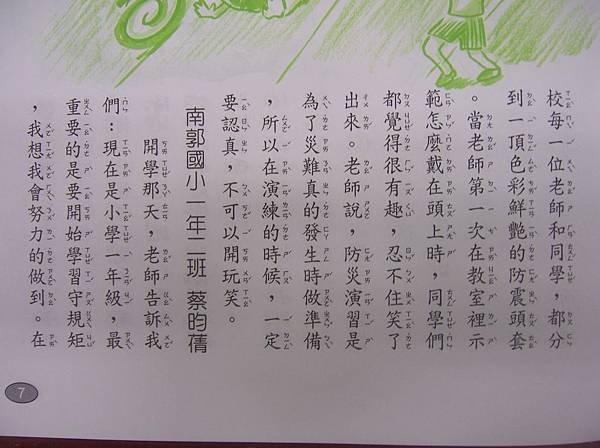 校每一位老師和同學，都分
到一頂色彩鮮艷的防震頭套
。當老師第一次在教室裡示
範怎麼戴在頭上時，同學們
都覺得很有趣，忍不住笑了
出來。老師說，防災演習是
為了災難真的發生時做準備
，所以在演練的時候，一定
要認真，不可以開玩笑。
南郭國小一年二班 蔡昀蒨
開學那天，老師告訴我
們：現在是小學一年級，最
重要的是要開始學習守規矩
，我想我會努力的做到。在
7